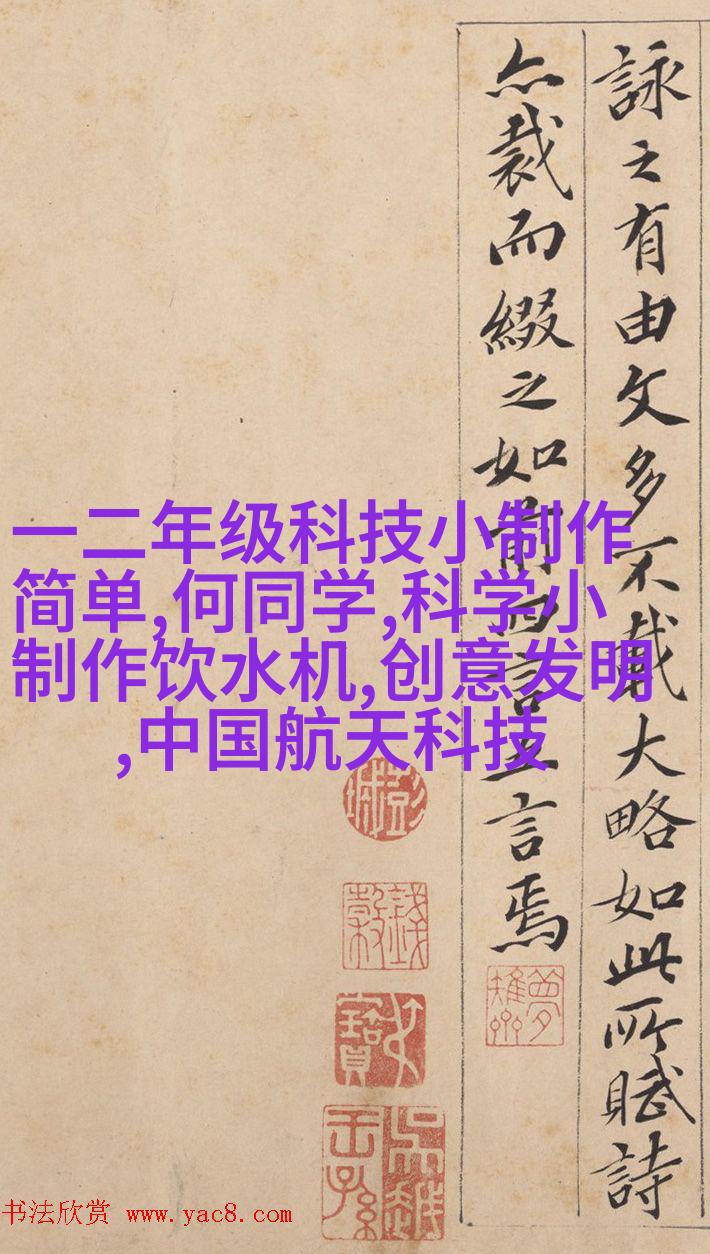 詠之有由文多不載大略如此所賦詩
亦裁而綴之如前四言五言焉
一二年级科技小制作
简单,何同学,科学小
制作饮水机,创意发明
,中国航天科技
书法欣赏 www.yac8.com